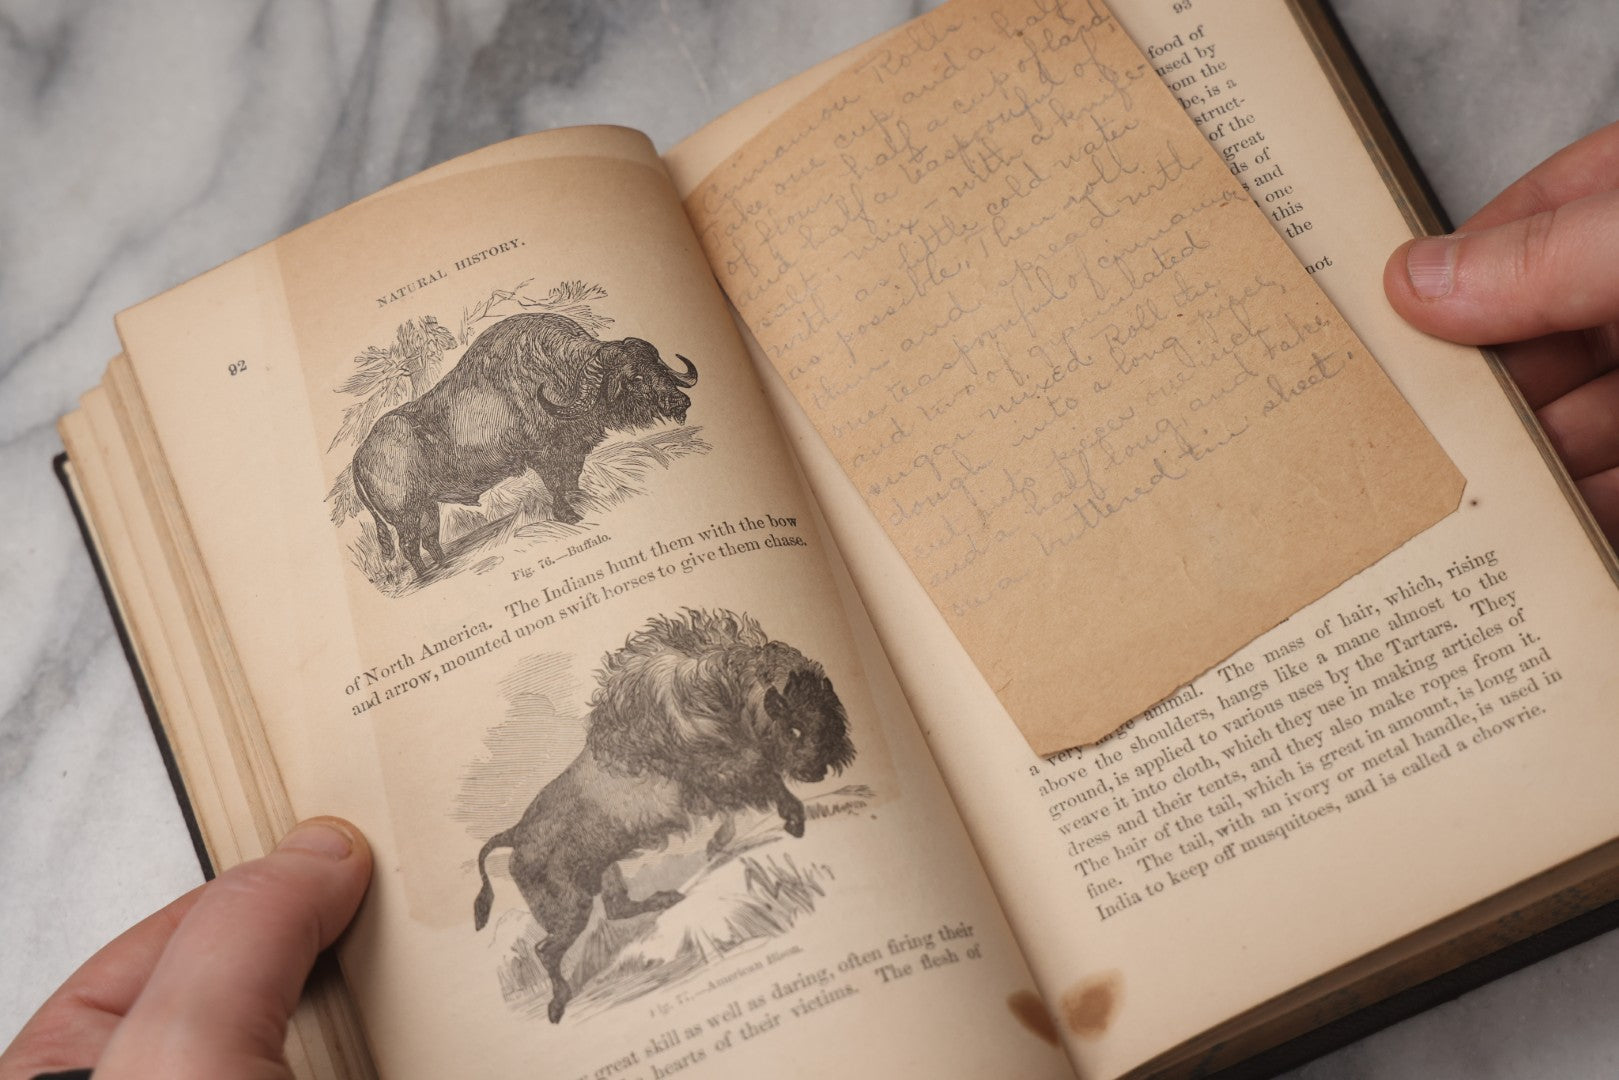 92
NATURAL HISTORY.
Fig. 76.—Buffalo.
of North America. The Indians hunt them with the bow
and arrow, mounted upon swift horses to give them chase.
Fig. 77.—American Bison.
great skill as well as daring, often firing their
hearts of their victims. The flesh of
Cinnamon Rolls.
Take one cup and a half
of flour, half a cup of lard,
and half a teaspoonful of
salt, mix with a knife
with as little cold water
as possible. Then roll
thin and spread with
one teaspoonful of cinnamon
and two of granulated
sugar mixed. Roll the
dough into a long piece,
cut into pieces one inch
and a half long, and bake
on a buttered tin sheet.
93
food of
used by
from the
be, is a
struct-
of the
great
of
and
one
this
the
not
a very large animal. The mass of hair, which, rising
above the shoulders, hangs like a mane almost to the
ground, is applied to various uses by the Tartars. They
weave it into cloth, which they use in making articles of
dress and their tents, and they also make ropes from it.
The hair of the tail, which is great in amount, is long and
fine. The tail, with an ivory or metal handle, is used in
India to keep off musquitoes, and is called a chowrie.